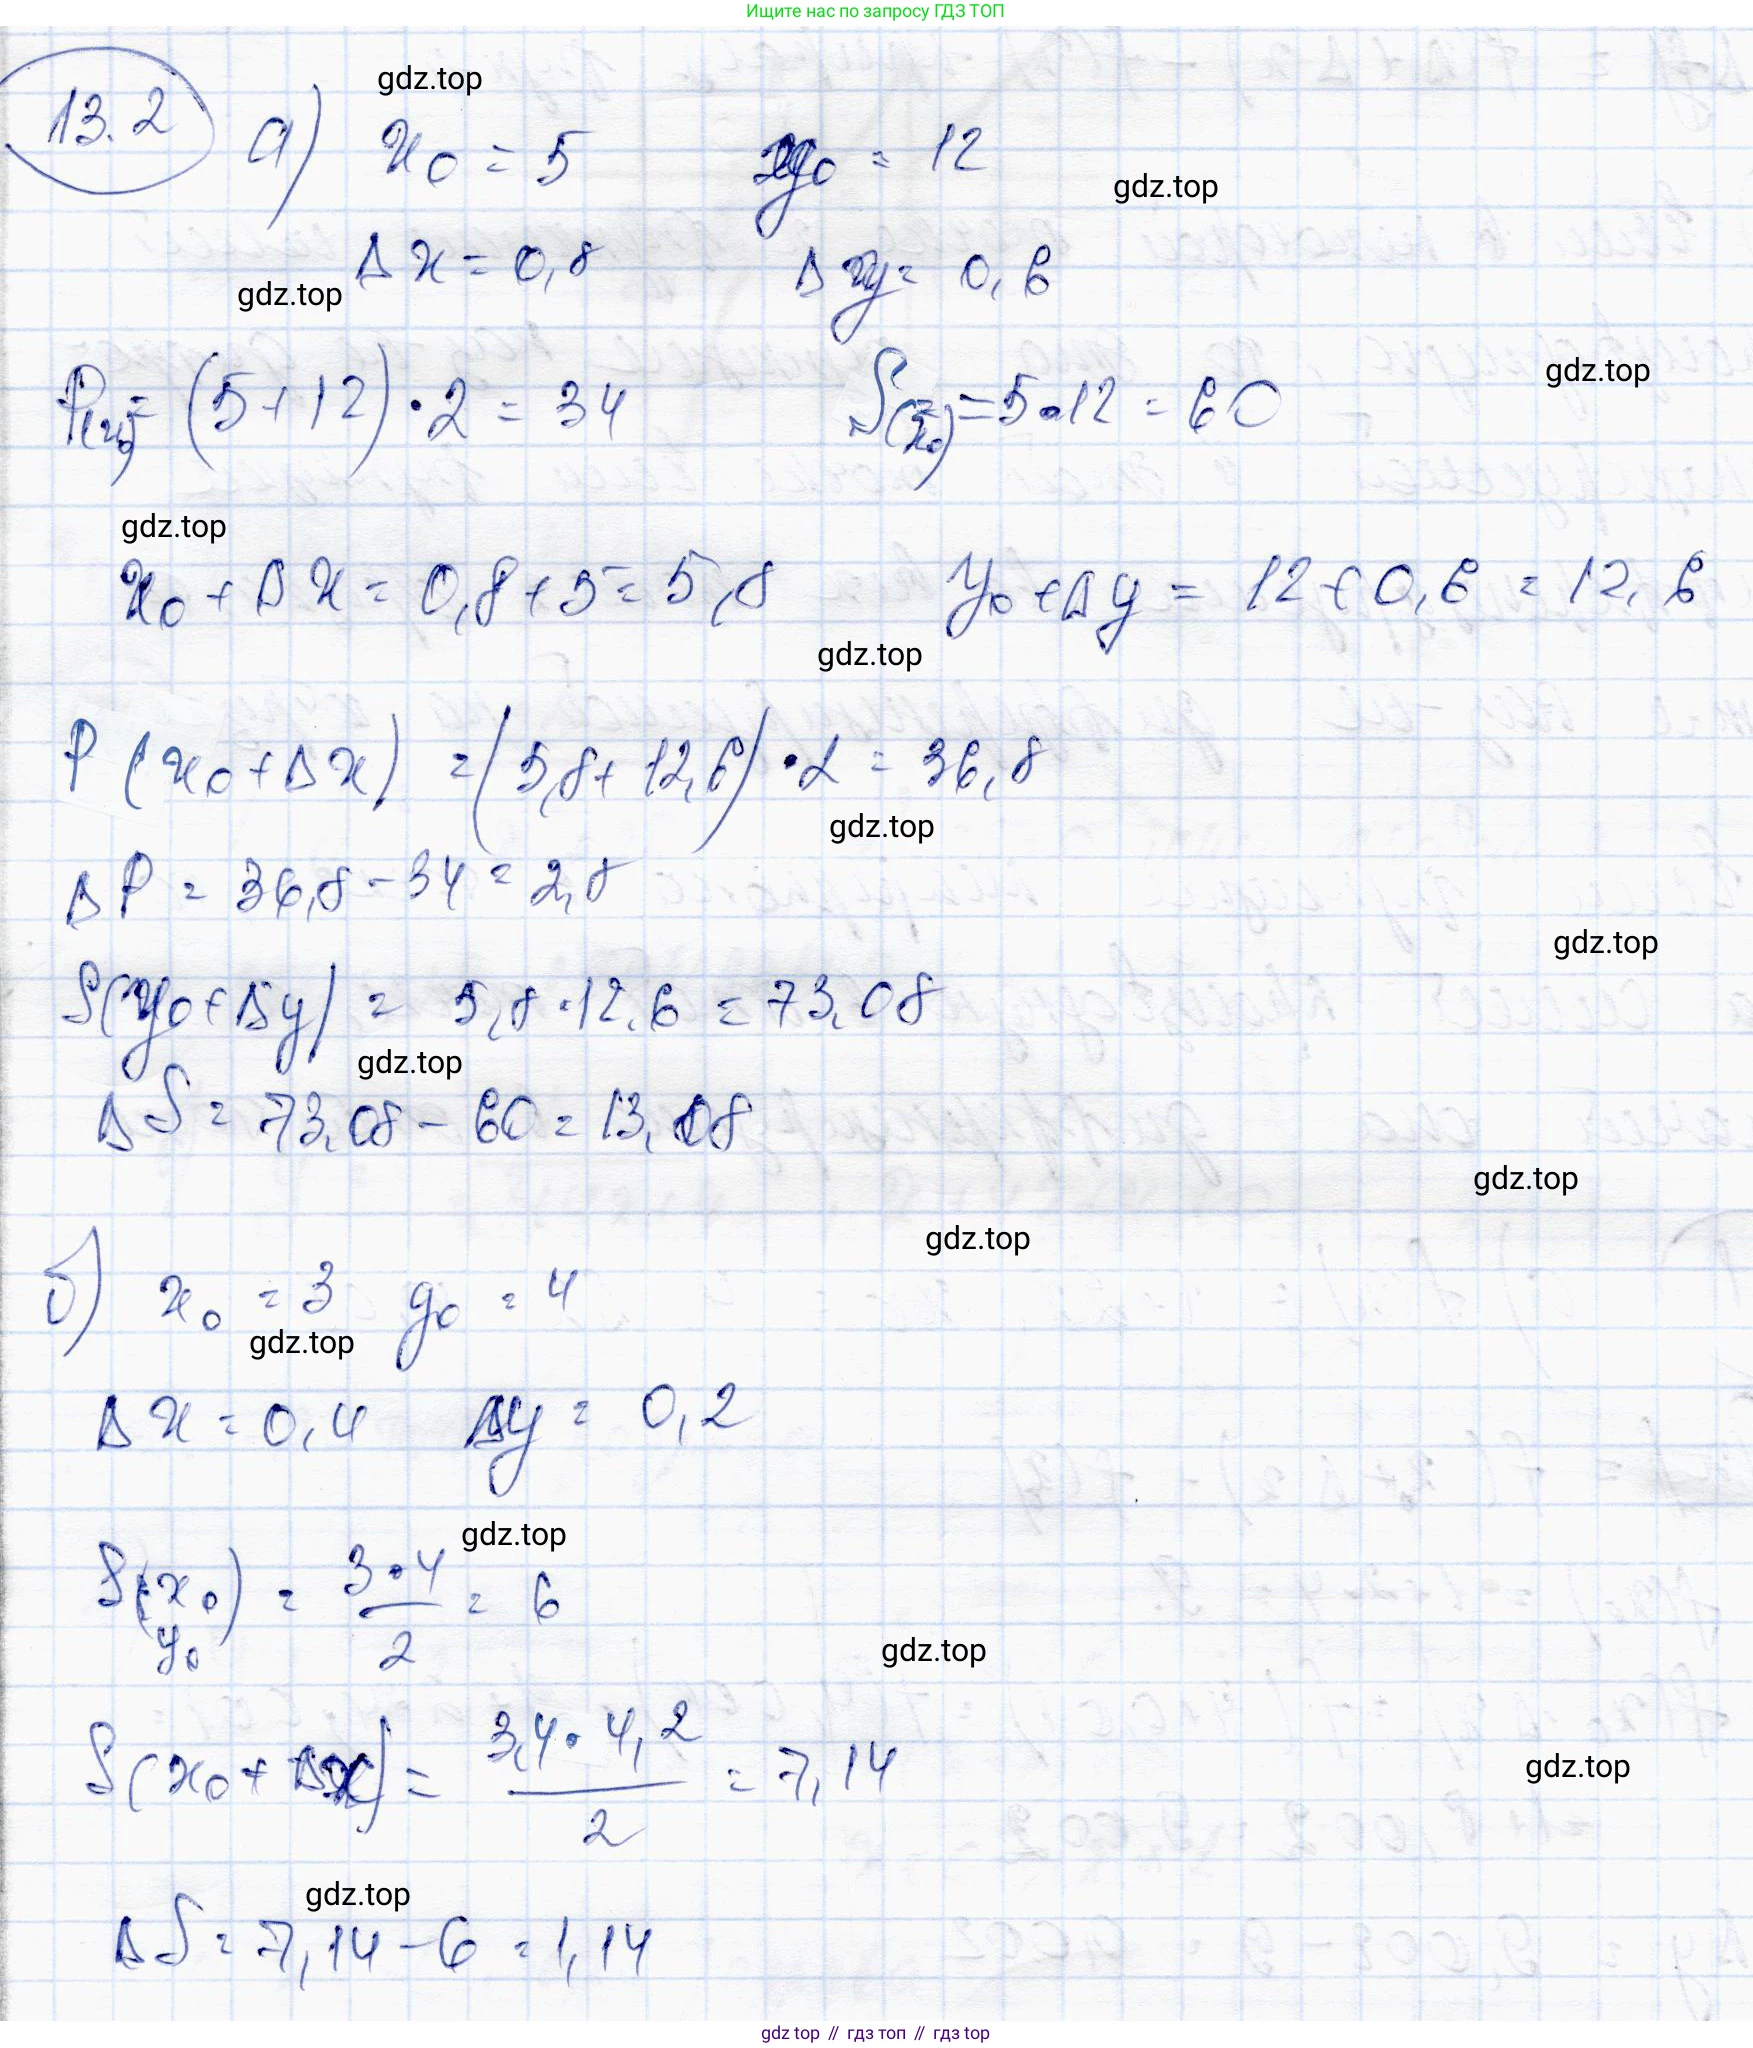 Ищите нас по запросу ГДЗ ТОП
gdz.top
13.2 а) x₀ = 5 y₀ = 12
gdz.top
Δx = 0,8 Δy = 0,6
gdz.top
gdz.top
P(x₀) = (5+12)·2 = 34 S(x₀) = 5·12 = 60
gdz.top
x₀ + Δx = 0,8+5 = 5,8 y₀ + Δy = 12+0,6 = 12,6
gdz.top
P(x₀+Δx) = (5,8+12,6)·2 = 36,8
gdz.top
ΔP = 36,8 - 34 = 2,8
gdz.top
S(y₀+Δy) = 5,8·12,6 = 73,08
gdz.top
ΔS = 73,08 - 60 = 13,08
gdz.top
gdz.top
б) x₀ = 3 y₀ = 4
gdz.top
Δx = 0,4 Δy = 0,2
gdz.top
S(x₀ y₀) = 3·4/2 = 6
gdz.top
S(x₀+Δx) = 3,4·4,2/2 = 7,14
gdz.top
gdz.top
ΔS = 7,14 - 6 = 1,14
gdz top // гдз топ // гдз top